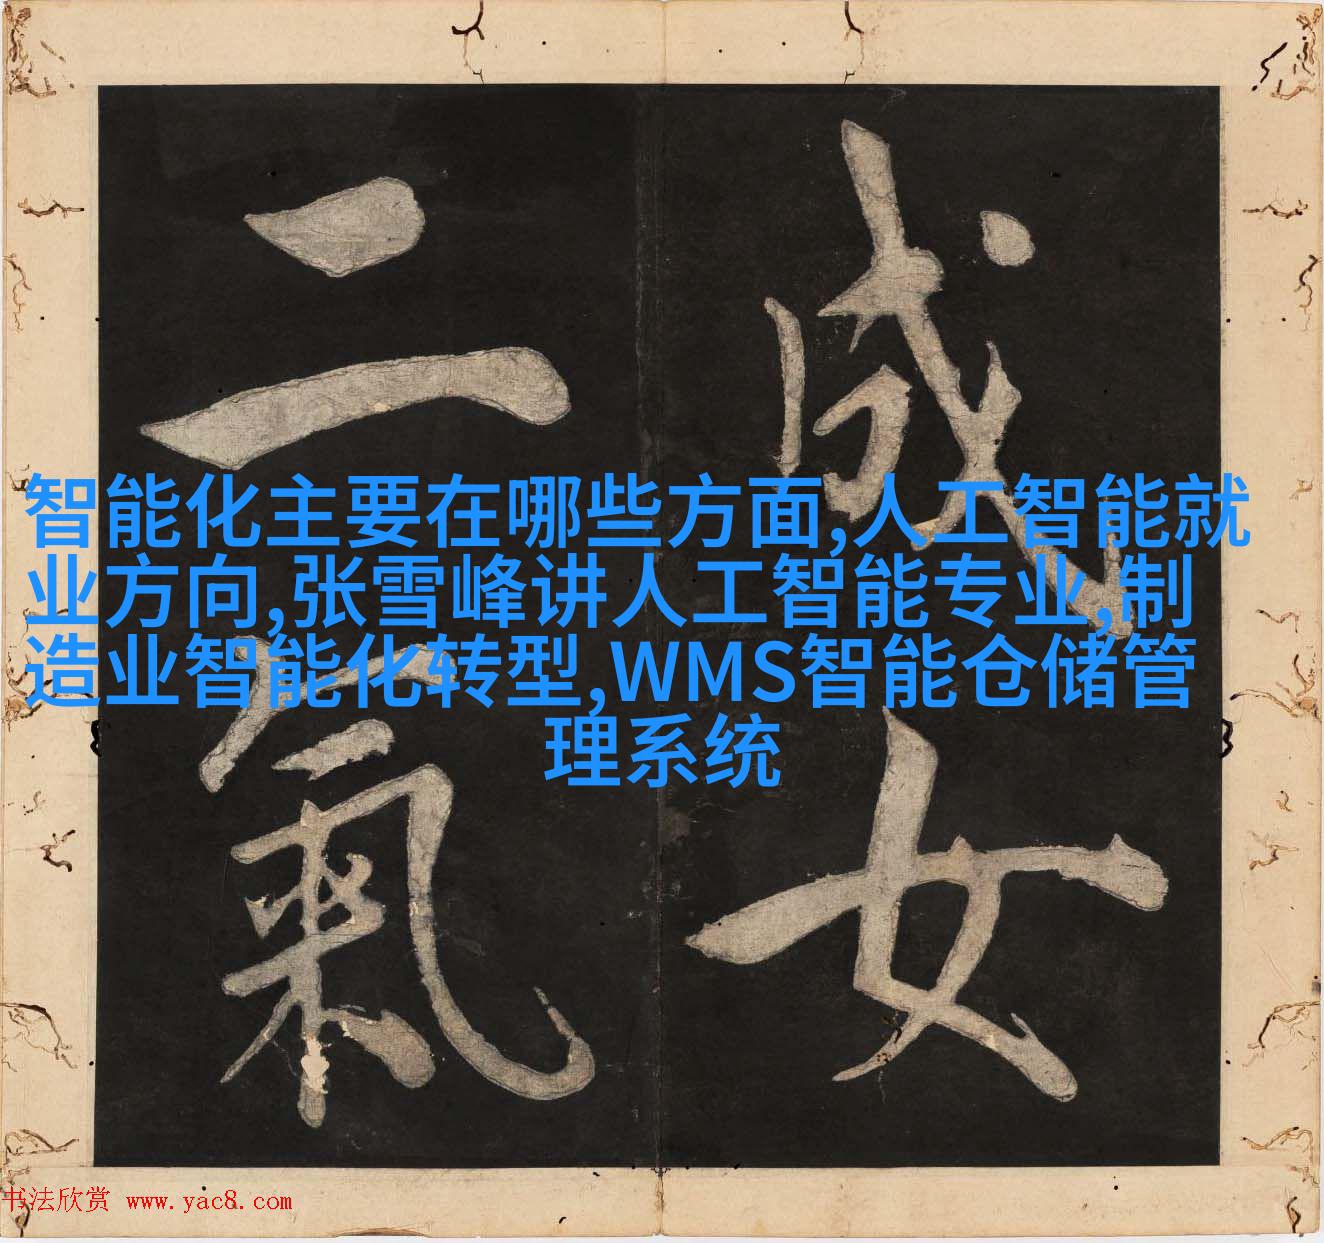 成女
二氣
智能化主要在哪些方面,人工智能就
业方向,张雪峰讲人工智能专业,制
造业智能化转型,WMS智能仓储管
理系统
书法欣赏 www.yac8.com